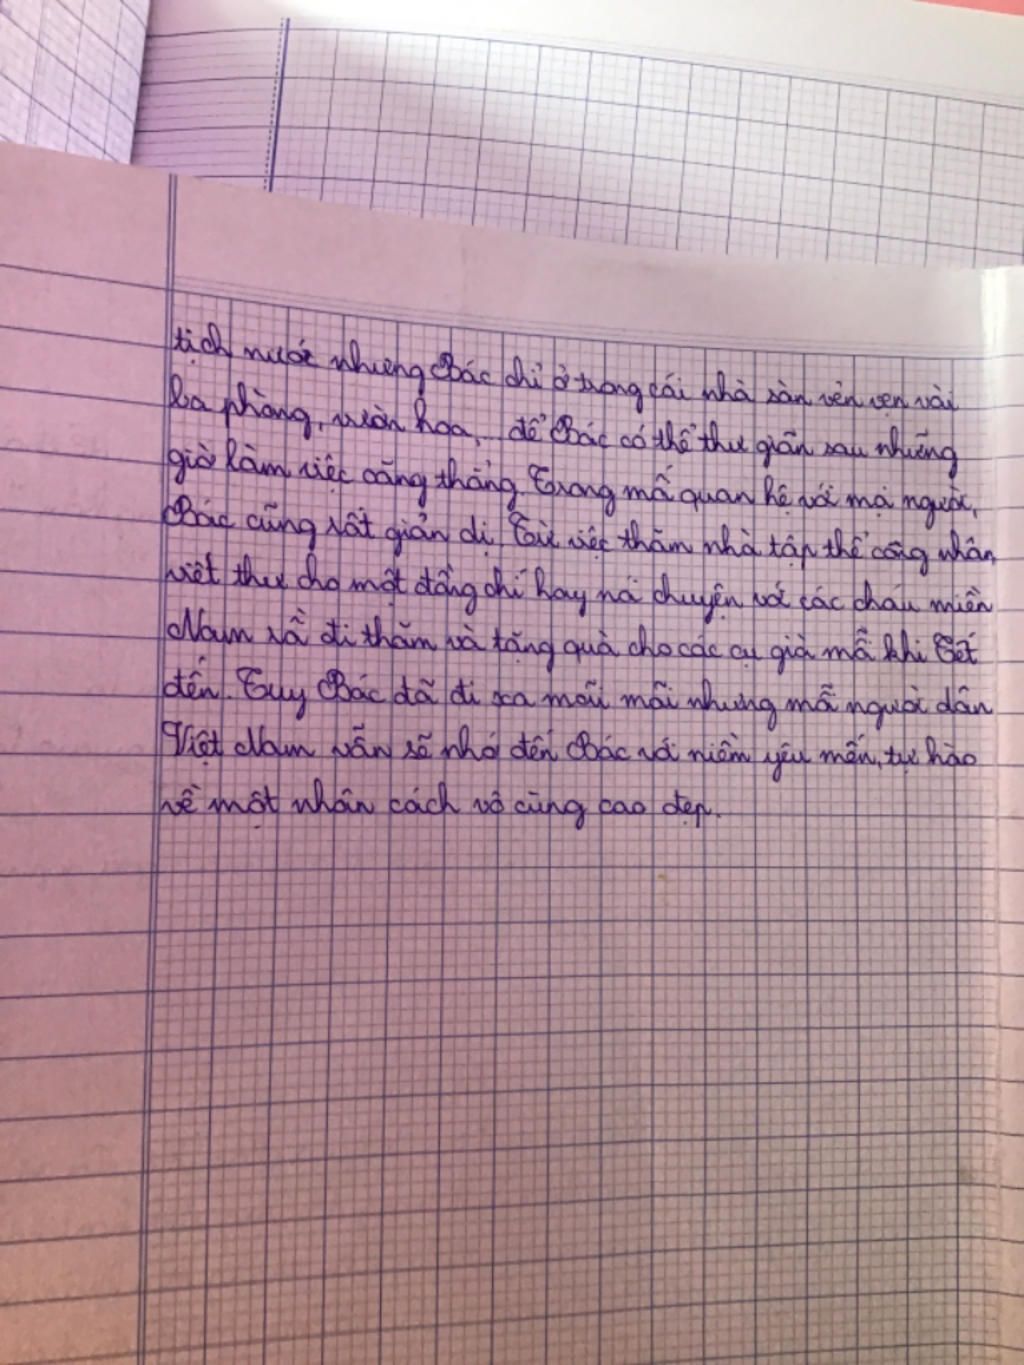 tịch nước nhưng Bác chỉ ở trong cái nhà sàn vẻn vẹn vài
ba phòng, vườn hoa, để Bác có thể thư giãn sau những
giờ làm việc căng thẳng. Trong mố quan hệ với mọi người,
Bác cũng rất giản dị. Từ việc thăm nhà tập thể công nhân,
viết thư cho một đồng chí hay nói chuyện với các cháu miền
Nam rồi đi thăm và tặng quà cho các cụ già mỗi khi Tết
đến. Tuy Bác đã đi xa mãi mãi nhưng mỗi người dân
Việt Nam vẫn sẽ nhớ đến Bác với niềm yêu mến, tự hào
về một nhân cách vô cùng cao đẹp.